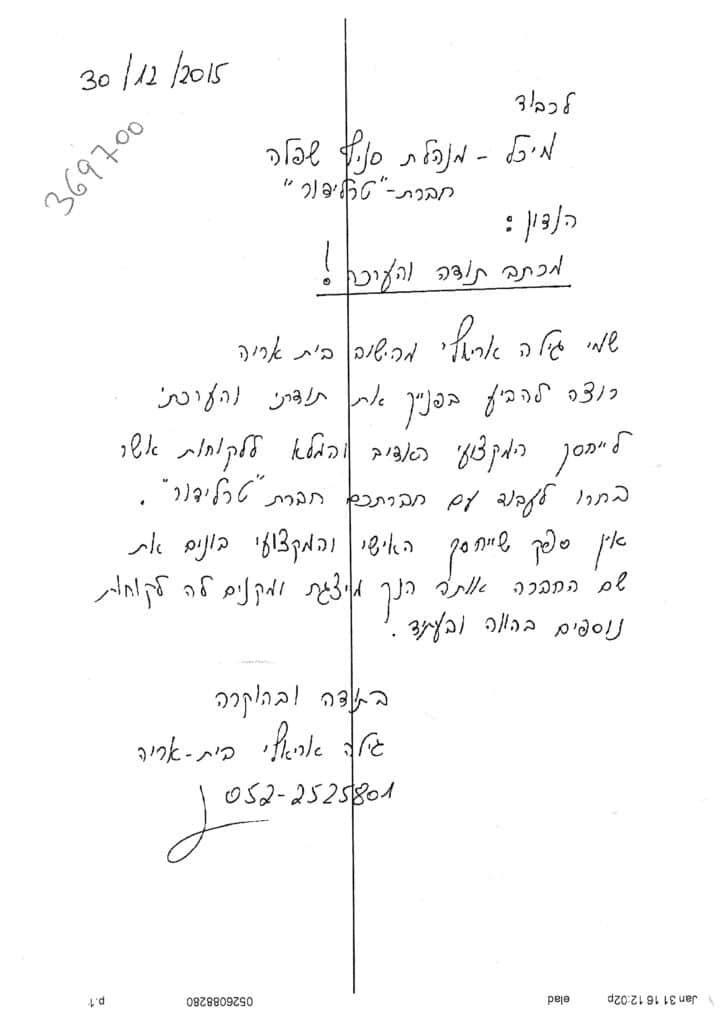 30/12/2015
369700
לכבוד
מיכל - מנהלת סניף שפלה
חברת-"טרלידור"
הנדון:
מכתב תודה והערכה!
שמי גילה אריאלי מהישוב בית אריה
רוצה להביע בפנייך את תודתי והערכתי
לייחסך המקצועי האדיב והמלא ללקוחות אשר
בחרו לעבוד עם חברתכם חברת "טרלידור".
אין ספק שייחסך האישי והמקצועי בונים את
שם החברה אותה הנך מיצגת ומקנים לה לקוחות
נוספים בהווה ובעתיד.
בתודה ובהוקרה
גילה אריאלי בית-אריה
052-2525801
Jan 31 16 12:02p elad 0526088280 p.1